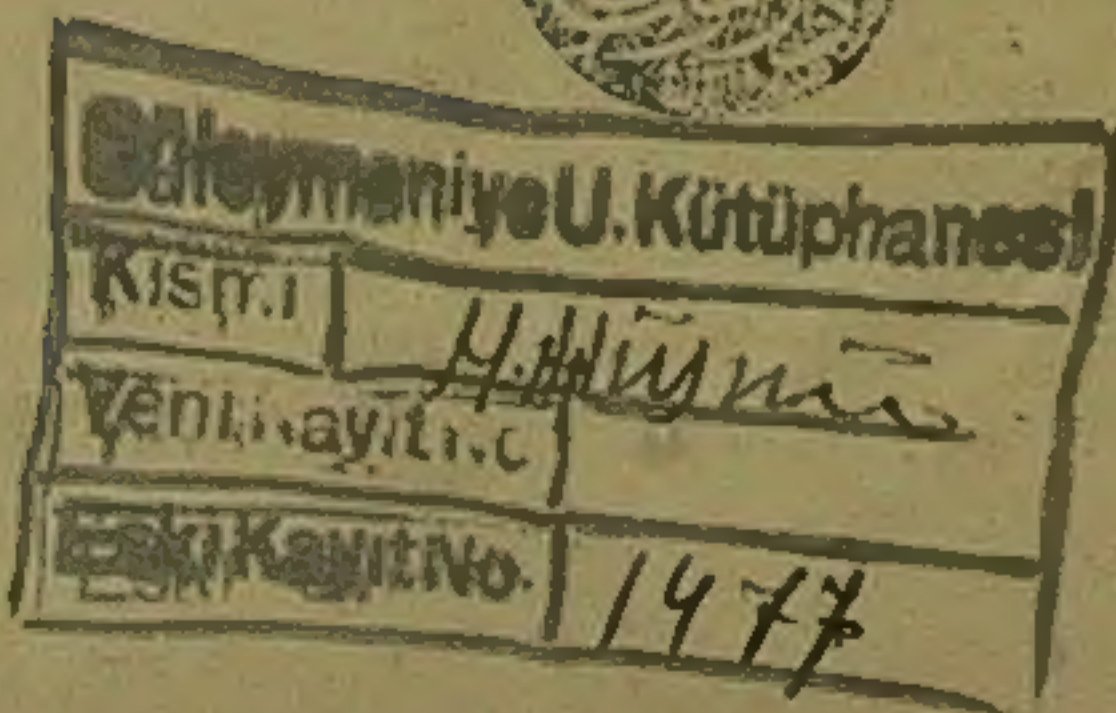 Süleymaniye U. Kütüphanesi
Kısmı H. Hüsnü
Yeni Kayıt No
Eski Kayıt No. 1477